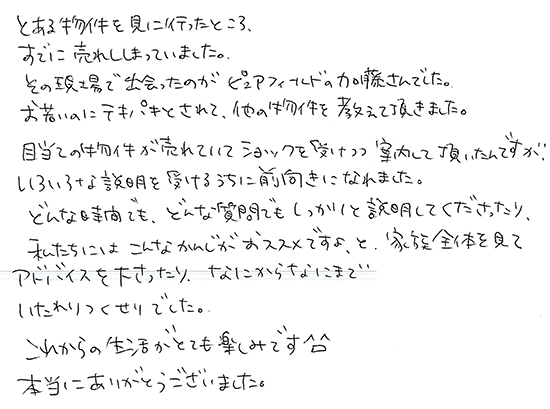 とある物件を見に行ったところ、
すでに売れてしまっていました。
その現場で出会ったのがピュアフィールドの加藤さんでした。
お若いのにテキパキとされて、他の物件を教えて頂きました。
目当ての物件が売れていてショックを受けつつ案内して頂いたんですが、
いろいろな説明を受けるうちに前向きになれました。
どんな時間でも、どんな質問でもしっかりと説明してくださったり、
私たちにはこんなかんじがおススメですよ、と、家族全体を見て
アドバイスを下さったり、なにからなにまで
いたれりつくせりでした。
これからの生活がとても楽しみです^^
本当にありがとうございました。